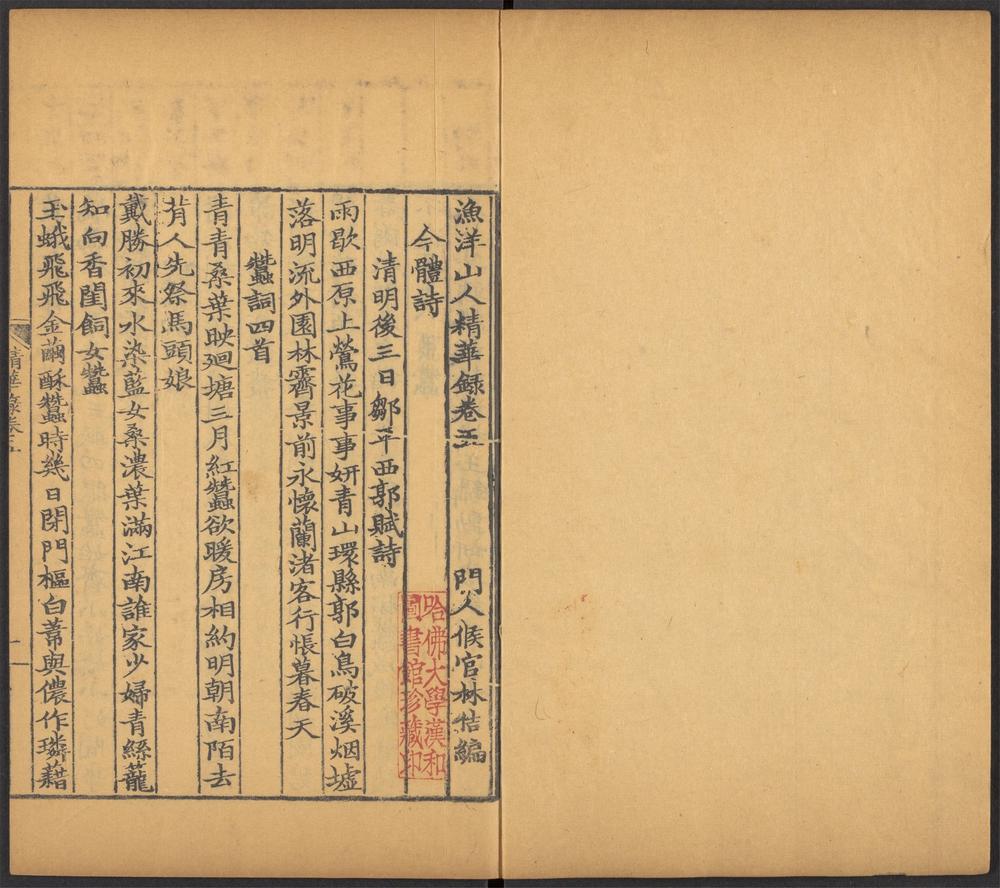 漁洋山人精華録卷五 門人候官林佶編
今體詩
清明後三日鄒平西郭賦詩
雨歇西原上鶯花事事妍青山環縣郭白鳥破溪烟墟
落明流外園林霽景前永懷蘭渚客行悵暮春天
蠶詞四首
青青桑葉映廻塘三月紅蠶欲暖房相約明朝南陌去
背人先祭馬頭娘
戴勝初來水染藍女桑濃葉滿江南誰家少婦青絲籠
知向香閨飼女蠶
玉蛾飛飛金繭酥蠶時幾日閉門樞白葦與儂作璘藉
精華録卷五
一
哈佛大學漢和
圖書館珍藏印